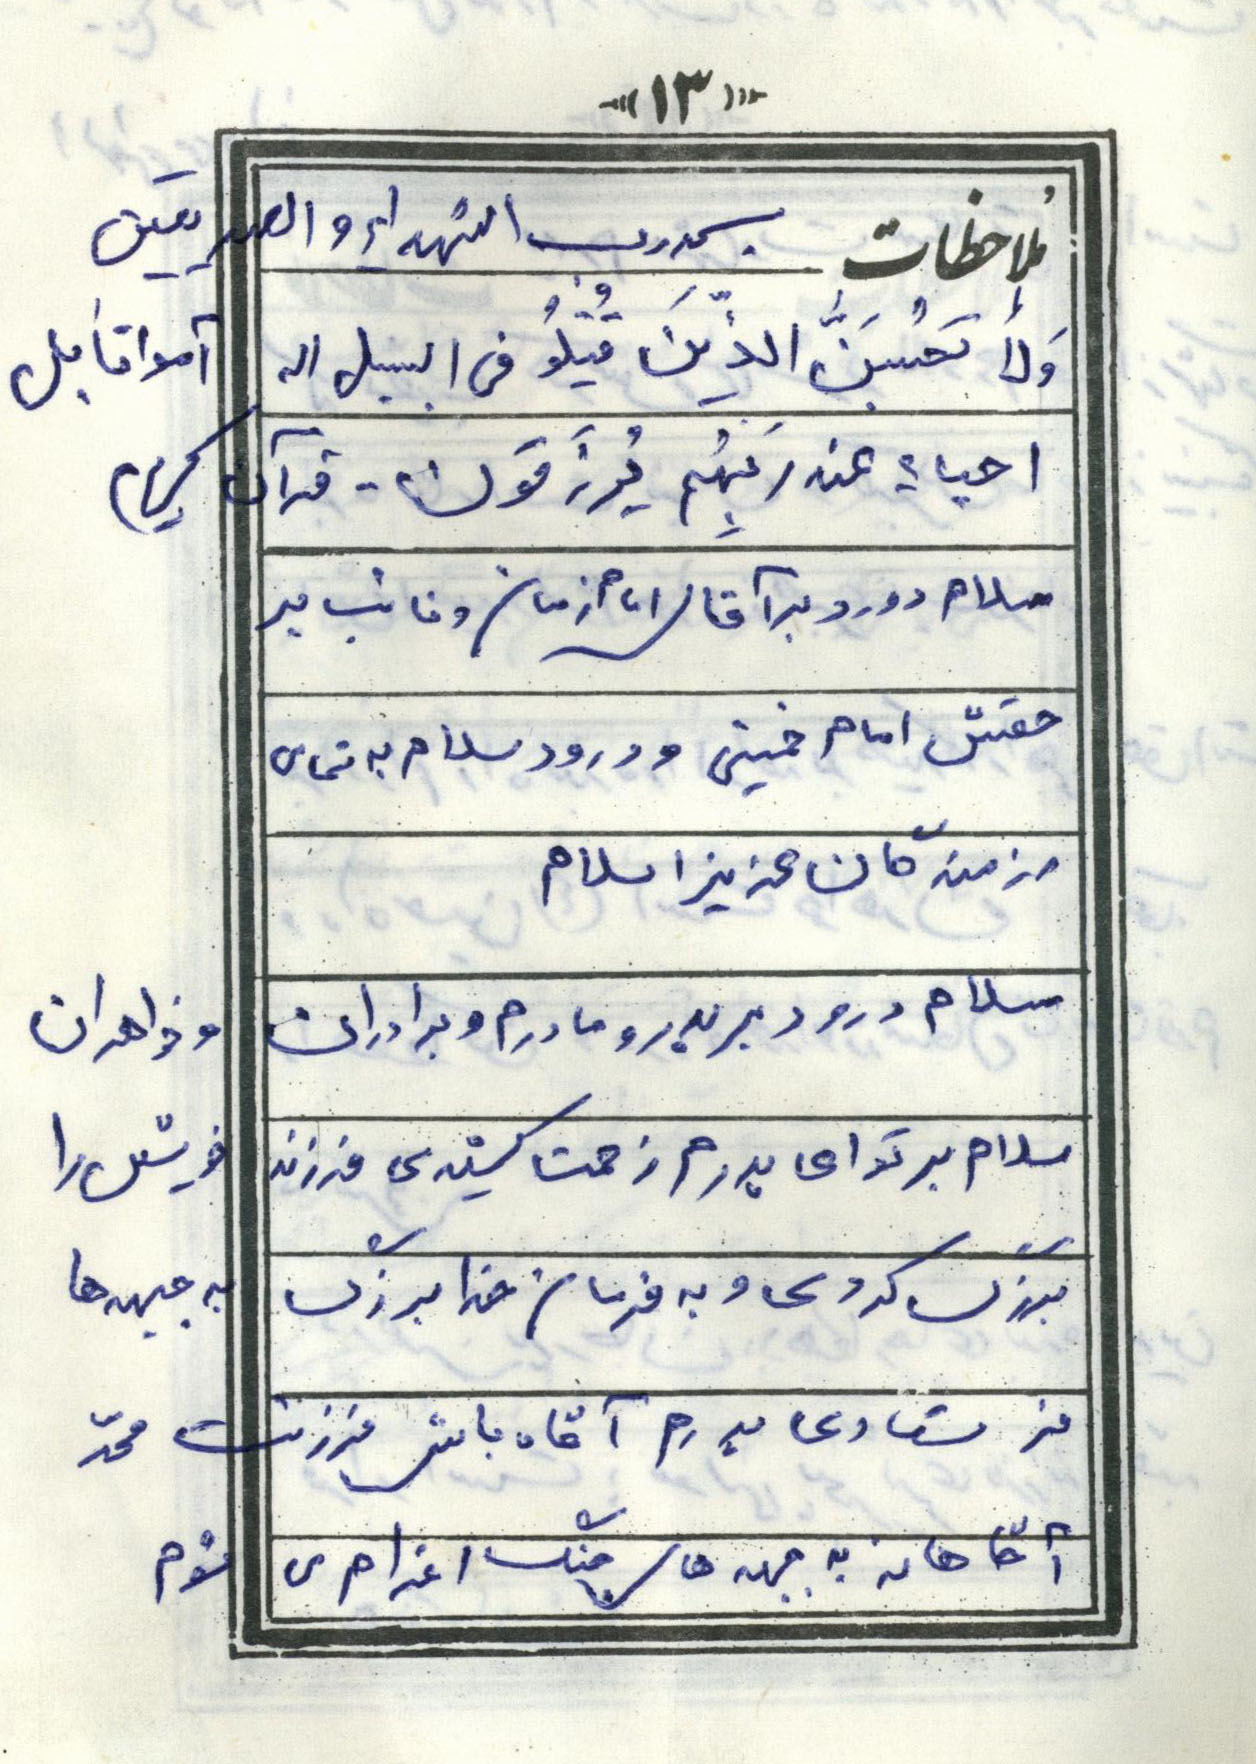 «۱۳»
ملاحظات بسم رب الشهداء و الصدیقین
وَلاَ تَحْسَبَنَّ الذِّینَ قُتِلُوُ فی السبیل اله آمواتاً بل
احیاء عند رَبِهُم یُرزَقَون - قرآن کریم
سلام درود بر آقای امام زمان و نائب بر
حقش امام خمینی و درود سلام به تمامی
رزمندگان عزیز اسلام
سلام درود بر پدر و مادرم و برادران و خواهران
سلام بر تو ای پدرم زحمت کشیدی فرزند خویش را
بزرگ کردی و به فرمان خدا بزرگ به جبهه ها
فرستادی پدرم آگاه باش فرزندت محمّد
آگاهانه به جبهه های جنگ اعزام می شوم